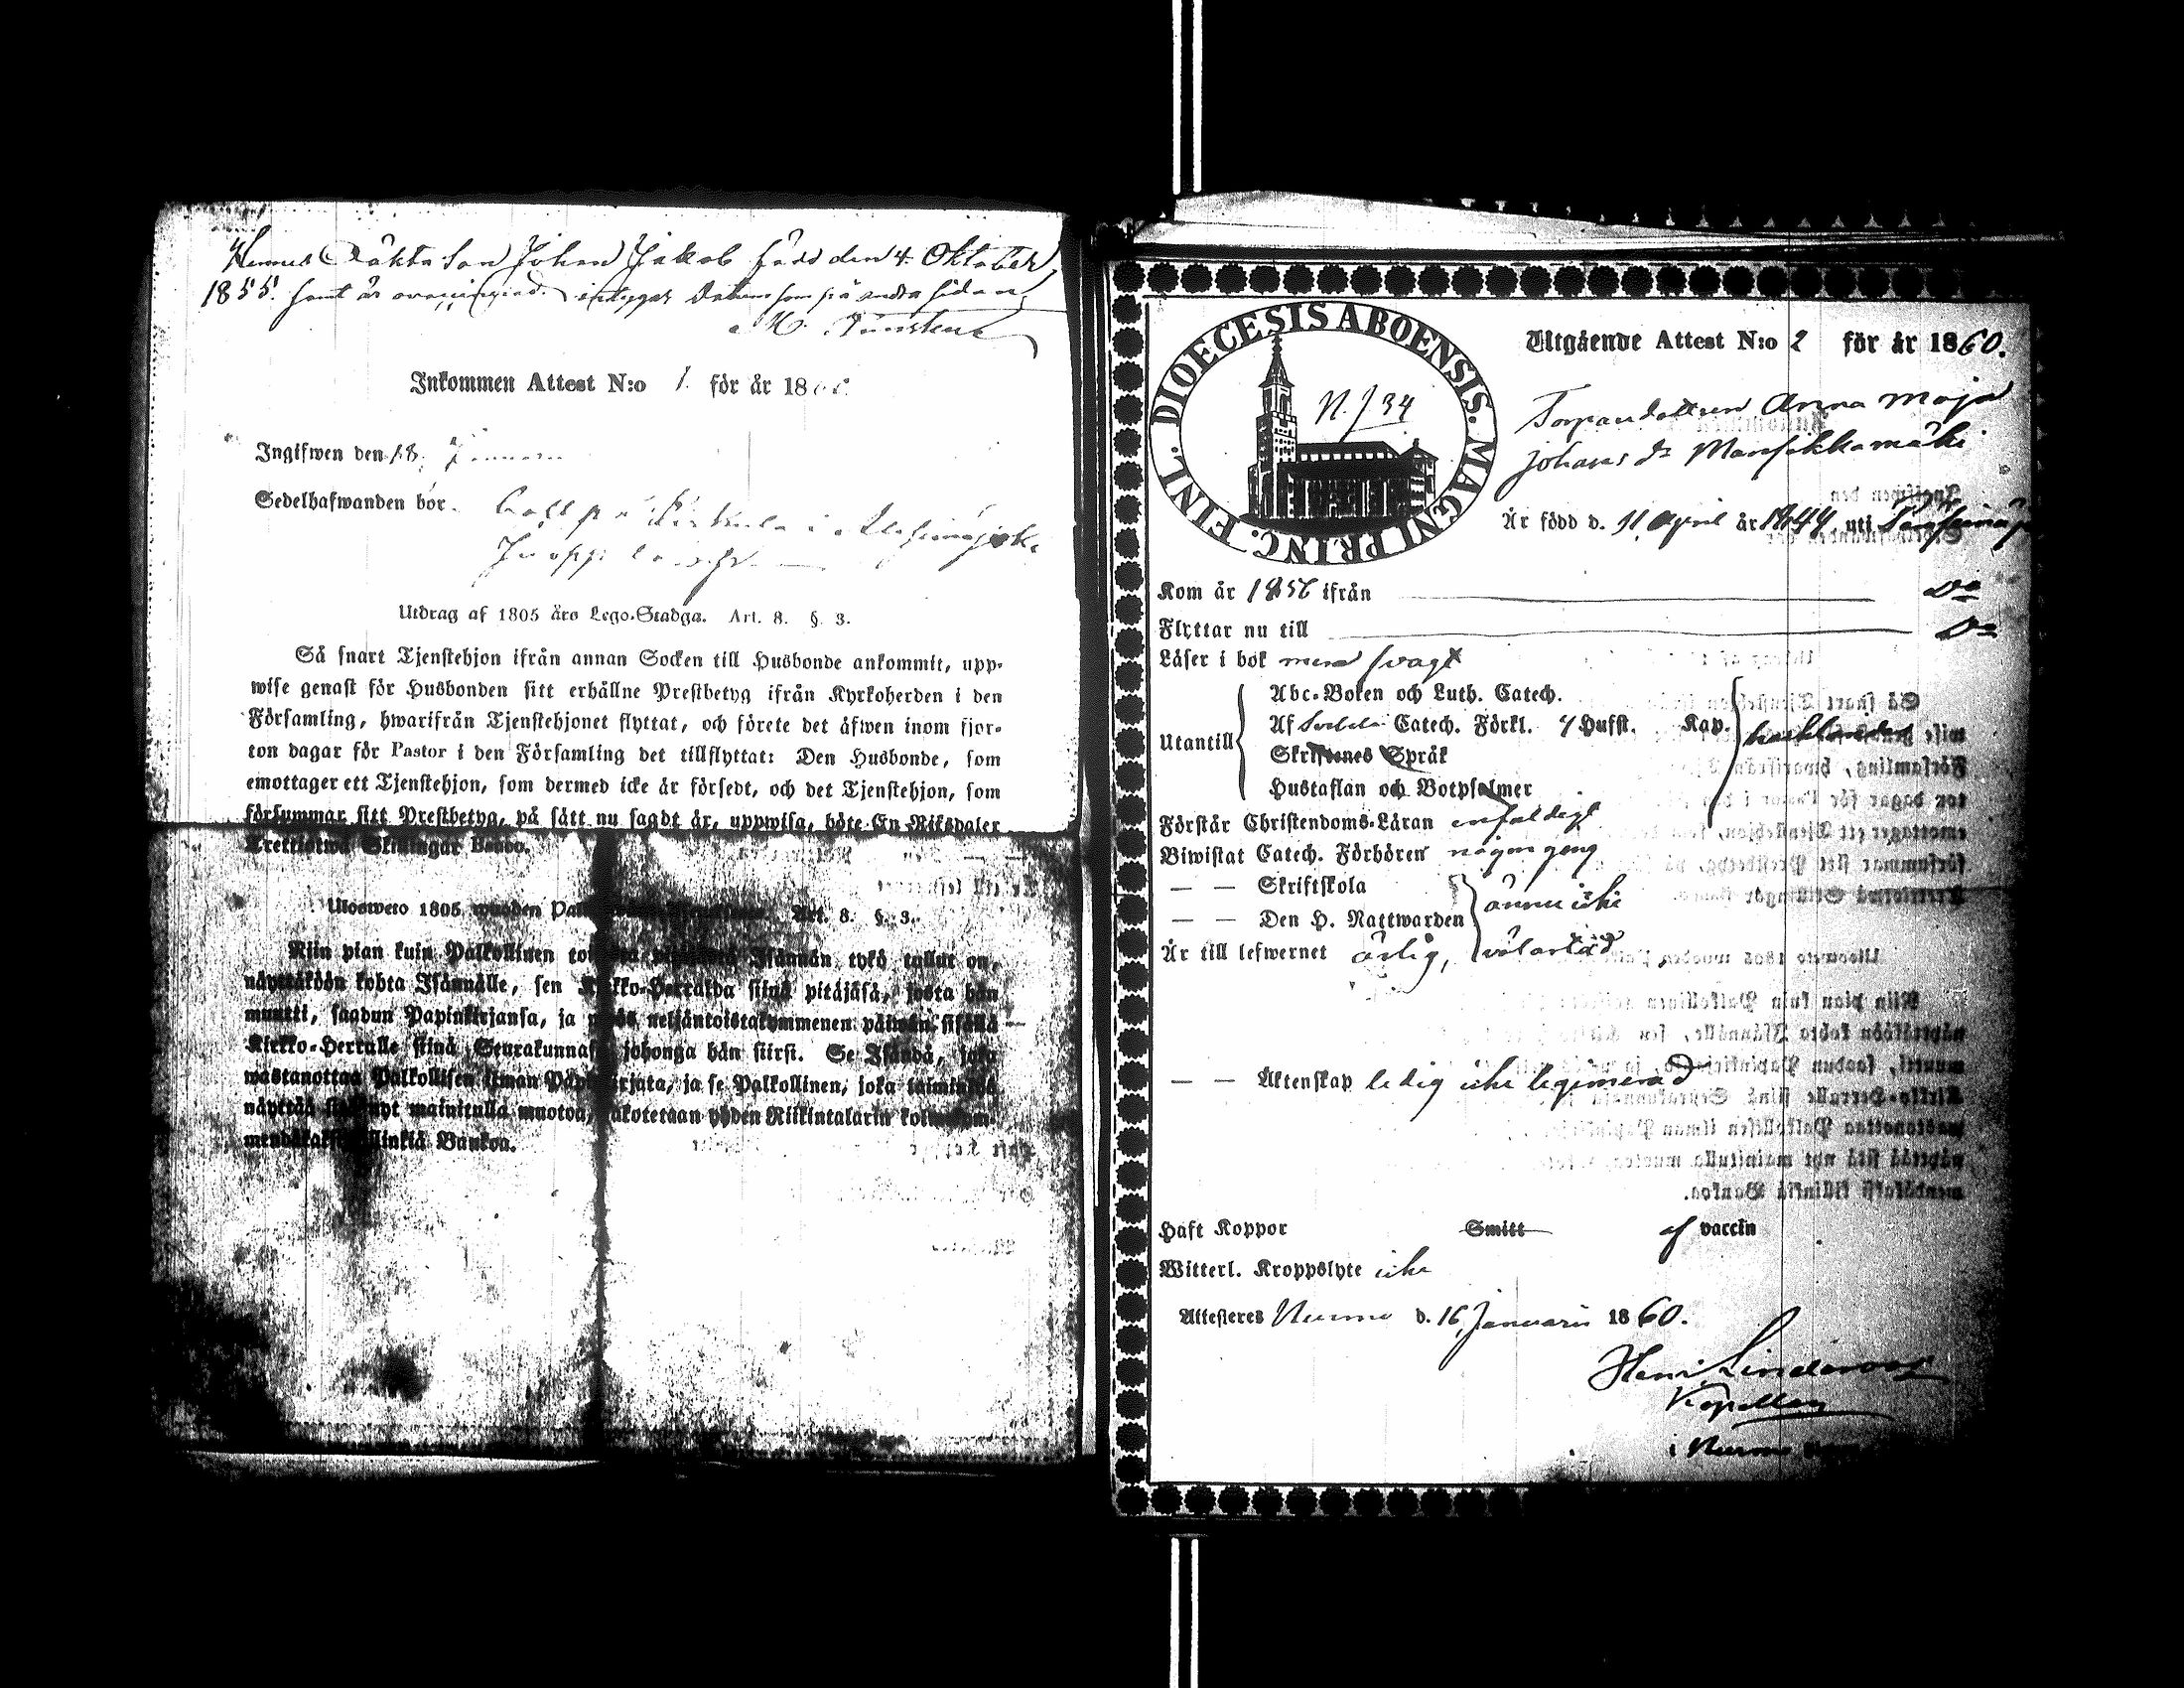 Hennes oäkta Son Johan Jakob född den 4. Oktober
1855. samt är intygar Datum som på andra sidan
M.
Inkommen Attest N:o 1. för år 18
Ingifwen den 18. Januari
Sedelhafwanden bor.
Utdrag af 1805 års Lego-Stadga. Art. 8. §. 3.
Så snart Tjenstehjon ifrån annan Socken till Husbonde ankommit, upp-
wise genast för Husbonden sitt erhållne Prestbetyg ifrån Kyrkoherden i den
Församling, hwarifrån Tjenstehjonet flyttat, och förete det äfwen inom fjor-
ton dagar för Pastor i den Församling det tillflyttat: Den Husbonde, som
emottager ett Tjenstehjon, som dermed icke är försedt, och det Tjenstehjon, som
försummar sitt Prestbetyg, på sätt nu sagdt är, uppwisa, böte En Riksdaler
Trettiotwå Skillingar Banco.
Ulosweto 1805 wuoden Art. 8. §. 3.
Niin pian kuin Palkollinen Isännän tykö tullut on,
näyttäköön kohta Isännälle, sen Kirkko-Herralda siinä pitäjäsä, josta hän
muutti, saadun Papinkirjansa, ja myös neljäntoistakymmenen päiwän sisällä
Kirkko-Herralle siinä Seurakunnasa johonga hän siirsi. Se Isändä, joka
wastanottaa Palkollisen ilman Papinkirjata, ja se Palkollinen, joka laiminlyö
näyttää sitä nyt mainitulla muotoa, sakotetaan yhden Riikintalarin kolmekym-
mendäkaksi killinkiä Bankoa.
DIOECESIS ABOENSIS. MAGNI PRINC. FINL.
N. J 34
Utgående Attest N:o 2 för år 1860.
Torpardottren Anna Maja
Johans dr Mansikkamäki
Är född d. 11 April år 1844 uti
Kom år 1856 ifrån Do
Flyttar nu till Do
Läser i bok mera svagt
Utantill
Abc-Boken och Luth. Catech.
Af Catech. Förkl. 4 Hufst. Kap.
Skriftenes Språk
Hustaflan och Botpsalmer
Förstår Christendoms-Läran enfaldigt
Biwistat Catech. Förhören någon gång
— — Skriftskola
— — Den H. Nattwarden ännu icke
Är till lefwernet ärlig, välartad
— — Äktenskap ledig icke legimerad
Haft Koppor Smitt af vaccin
Witterl. Kroppslyte icke
Attesteres Nurmo d. 16 Januarii 1860.
Henr. Linderoos
Kapellan
i Nurmo